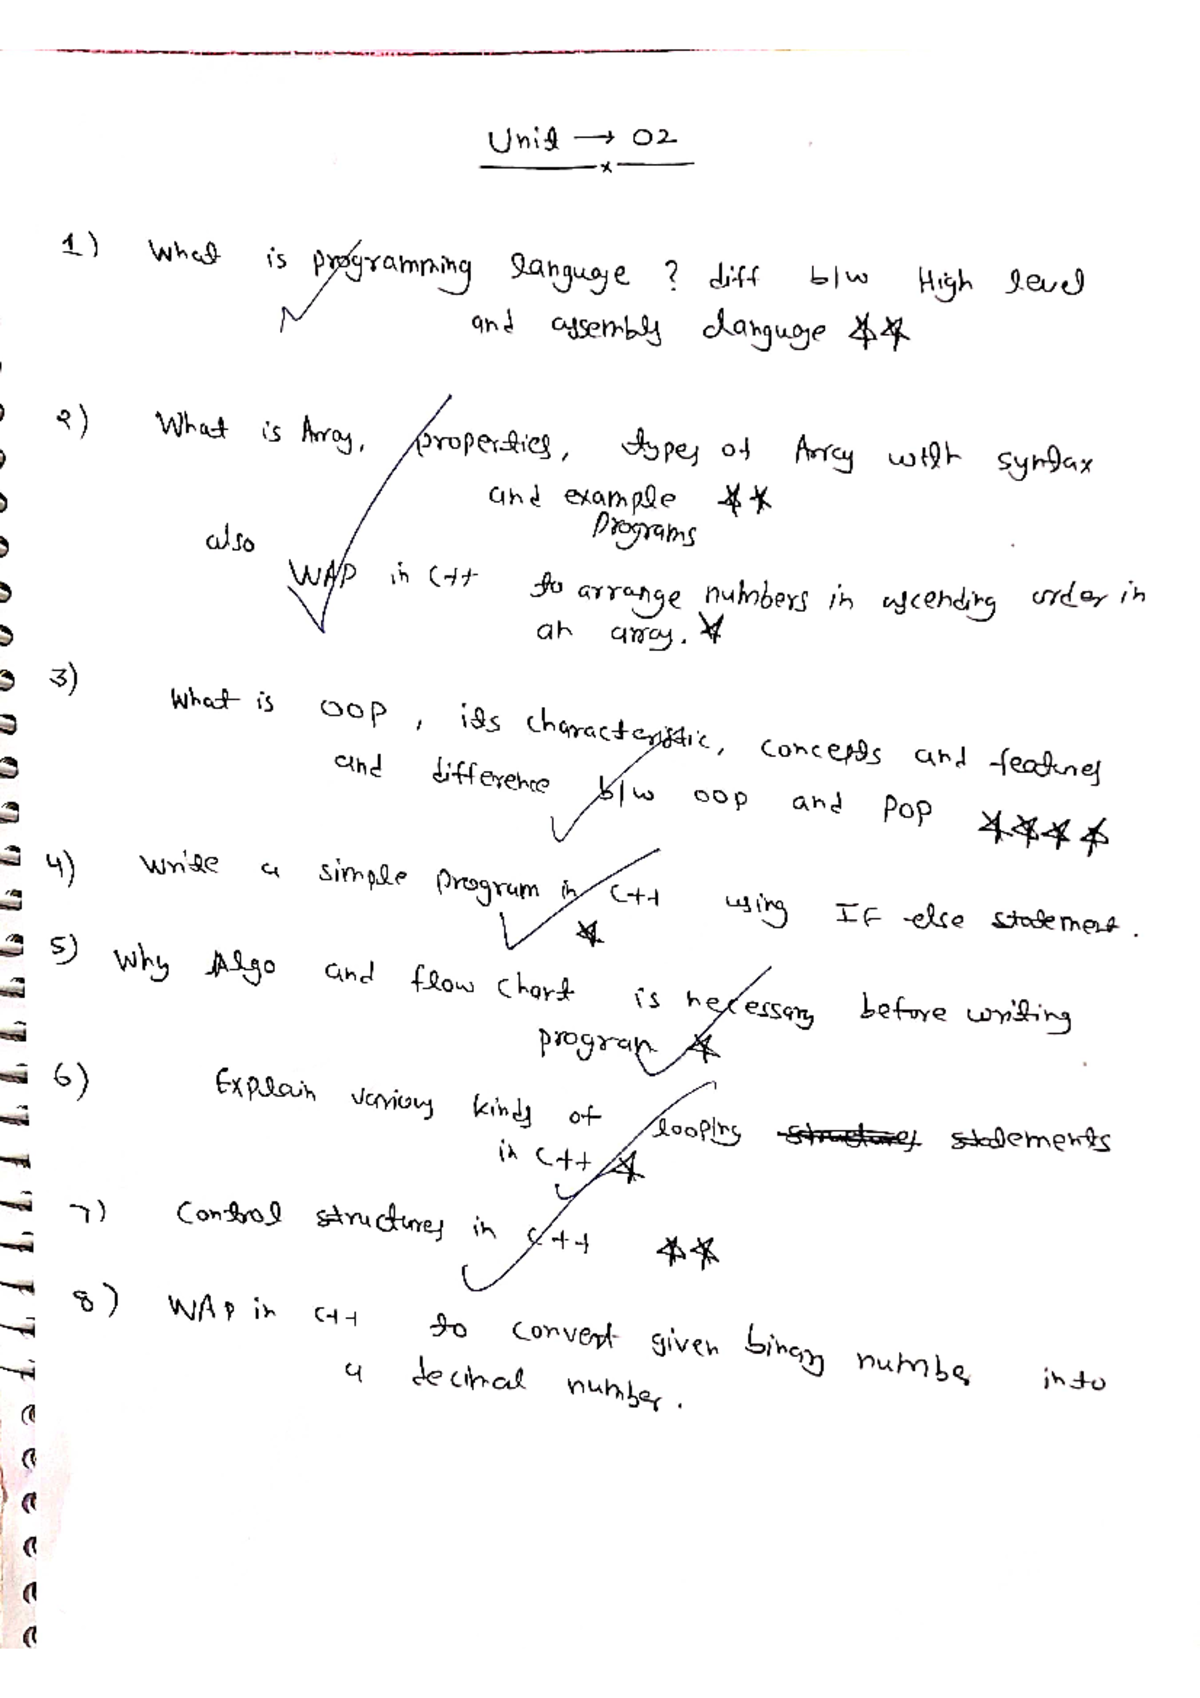 Unit → 02
1) What is programming language ? diff b/w High level
and assembly language ☆☆
2) What is Array, properties, types of Array with syntax
and example ☆☆
Programs
also WAP in C++ to arrange numbers in ascending order in
an array. ☆
3) What is OOP, its characteristic, concepts and features
and difference b/w OOP and POP ☆☆☆☆
4) Write a simple program in C++ using IF else statement.
☆
5) Why Algo and flow chart is necessary before writing
program ☆
6) Explain various kinds of looping structures statements
in C++ ☆
7) Control structures in C++ ☆☆
8) WAP in C++ to convert given binary number into
a decimal number.